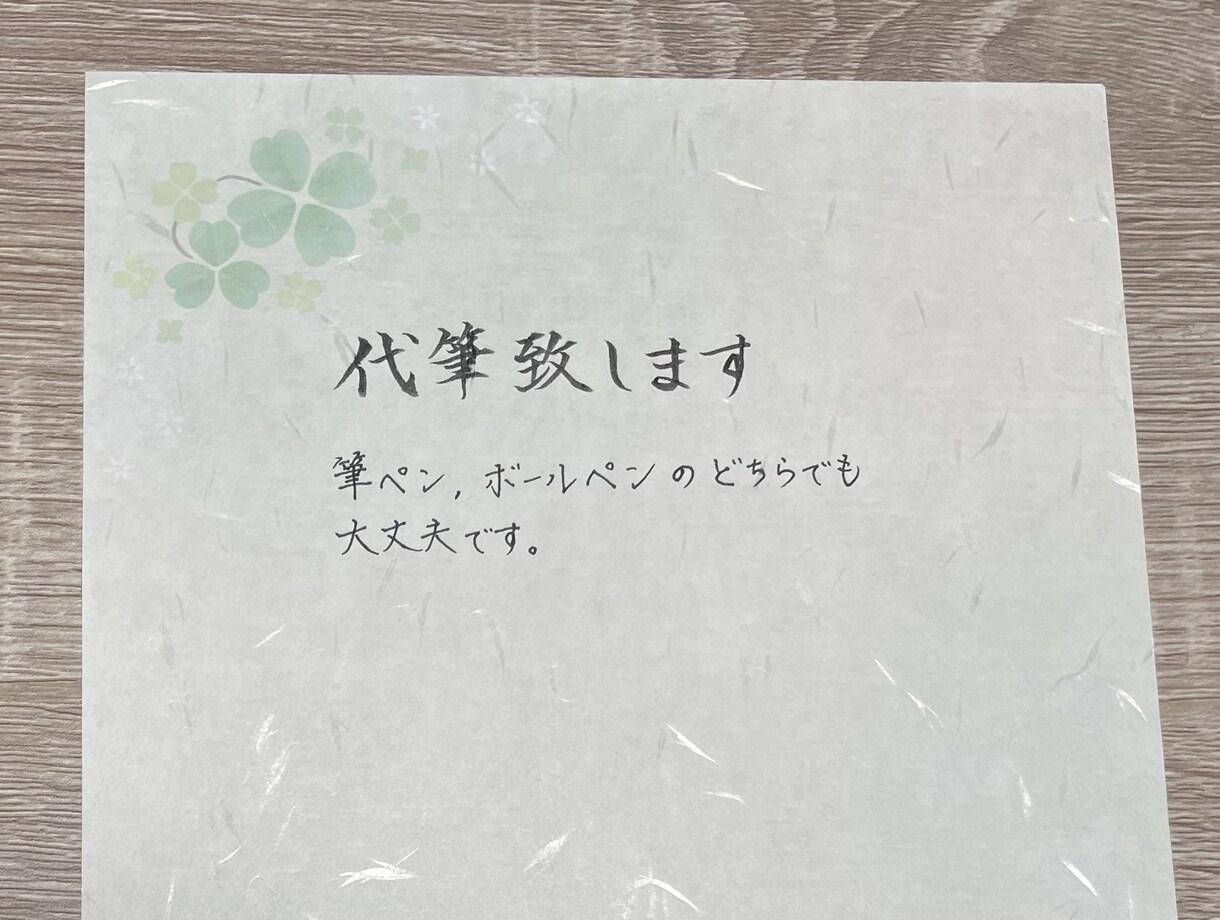 代筆致します
筆ペン,ボールペンのどちらでも
大丈夫です。